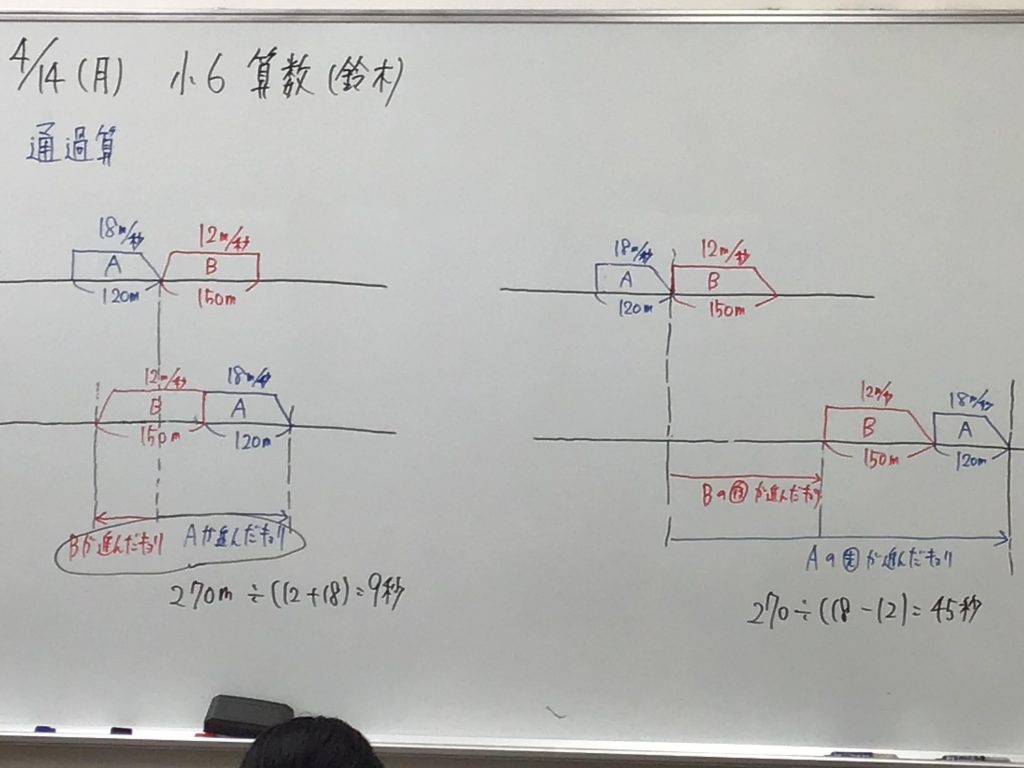 4/14(月) 小6 算数(鈴木)
通過算
18m/秒 12m/秒
A B
120m 150m
12m/秒 18m/秒
B A
150m 120m
Bが進んだキョリ Aが進んだキョリ
270m÷(12+18)=9秒
18m/秒 12m/秒
A B
120m 150m
12m/秒 18m/秒
B A
150m 120m
Bの後が進んだキョリ
Aの先が進んだキョリ
270÷(18-12)=45秒